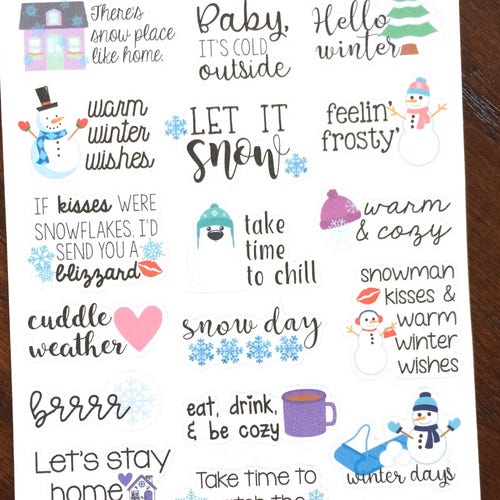 There's
snow place
like home.
Baby,
IT'S COLD
outside
Hello
winter
warm
winter
wishes
LET IT
snow
feelin'
frosty'
IF kisses WERE
SNOWFLAKES, I'D
SEND YOU A
blizzard
take
time
to chill
warm
& cozy
cuddle
weather
snow day
snowman
kisses &
warm
winter
wishes
brrrr
eat, drink,
& be cozy
winter days
Let's stay
home
Take time to
the